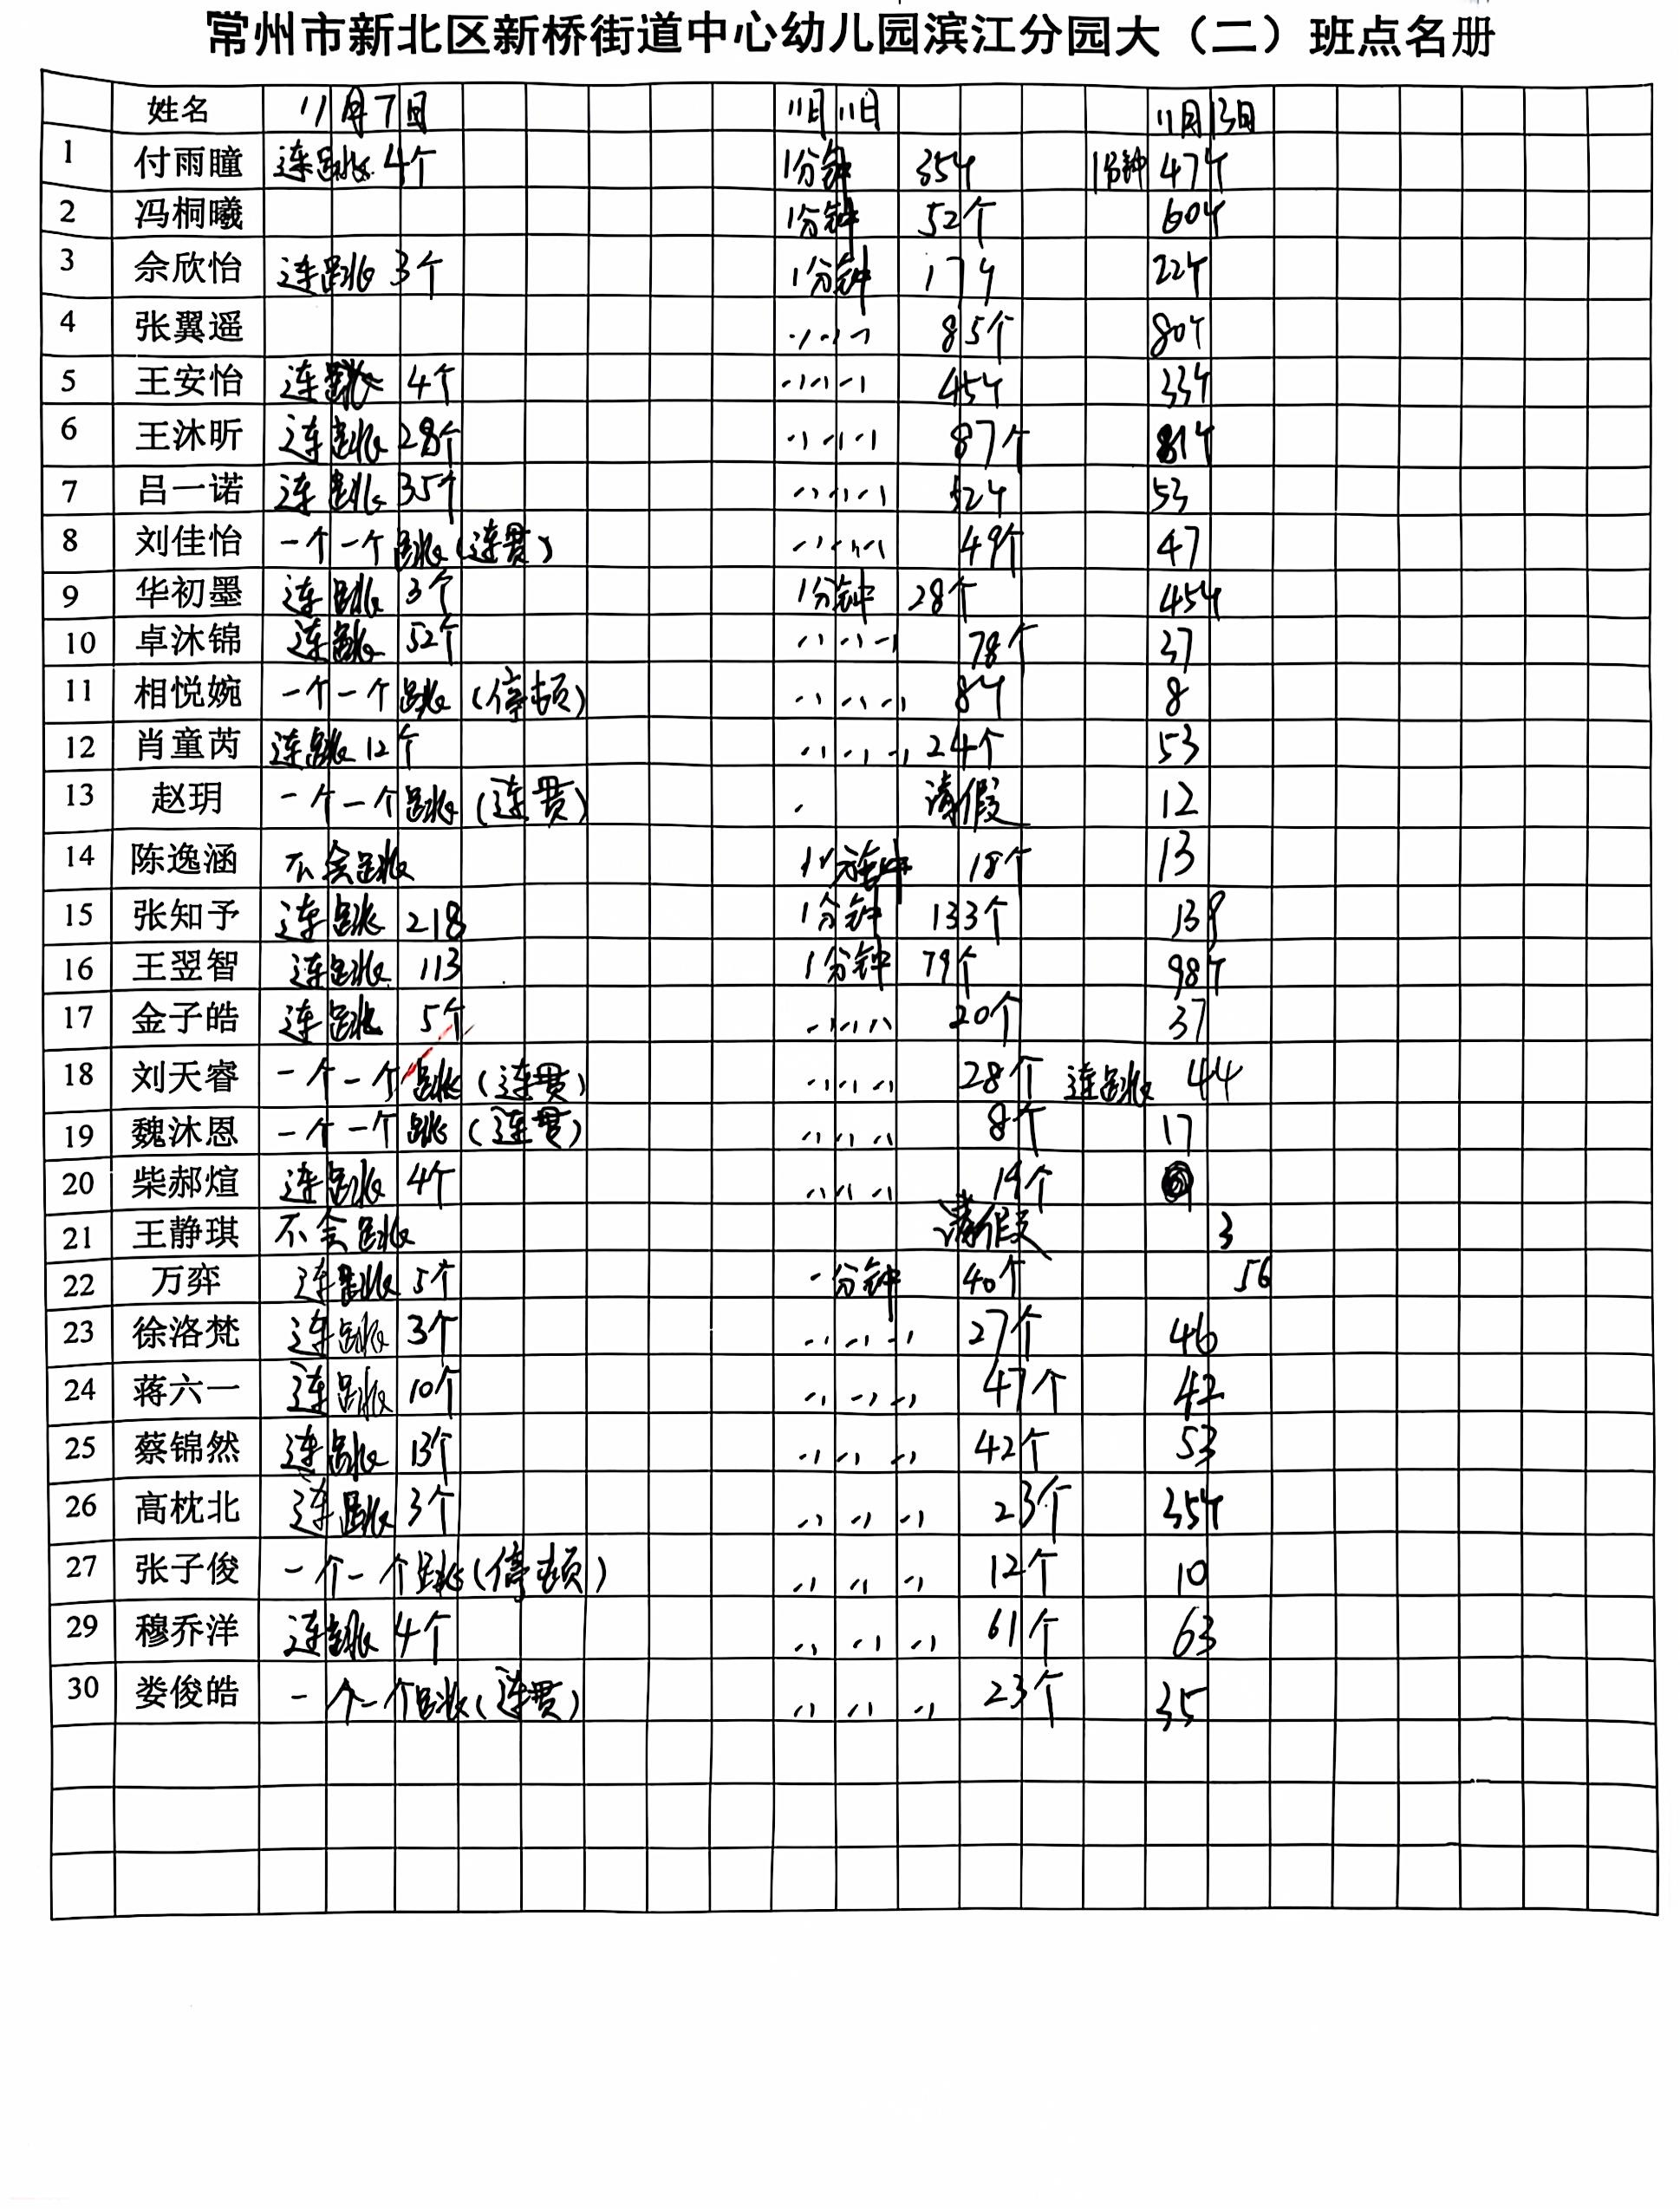 常州市新北区新桥街道中心幼儿园滨江分园大（二）班点名册
姓名 11月7日 11月11日 11月13日
1 付雨瞳 连跳 4个 1分钟 35个 1分钟 47个
2 冯桐曦 1分钟 52个 60个
3 佘欣怡 连跳 3个 1分钟 17个 22个
4 张翼遥 85个 80个
5 王安怡 连跳 4个 45个 33个
6 王沐昕 连跳 28个 87个 81个
7 吕一诺 连跳 35个 52个 53
8 刘佳怡 一个一个跳(连贯) 49个 47
9 华初墨 连跳 3个 1分钟 28个 45个
10 卓沐锦 连跳 52个 78个 37
11 相悦婉 一个一个跳(停顿) 8个 8
12 肖童芮 连跳 12个 24个 53
13 赵玥 一个一个跳(连贯) 请假 12
14 陈逸涵 不会跳 1分钟 18个 13
15 张知予 连跳 218 1分钟 133个 139
16 王翌智 连跳 113 1分钟 79个 98个
17 金子皓 连跳 5个 20个 37
18 刘天睿 一个一个跳(连贯) 28个 连跳 44
19 魏沐恩 一个一个跳(连贯) 8个 17
20 柴郝煊 连跳 4个 19个
21 王静琪 不会跳 请假 3
22 万弈 连跳 5个 一分钟 40个 56
23 徐洛梵 连跳 3个 27个 46
24 蒋六一 连跳 10个 47个 42
25 蔡锦然 连跳 13个 42个 53
26 高枕北 连跳 3个 23个 35个
27 张子俊 一个一个跳(停顿) 12个 10
29 穆乔洋 连跳 4个 61个 63
30 娄俊皓 一个一个跳(连贯) 23个 35